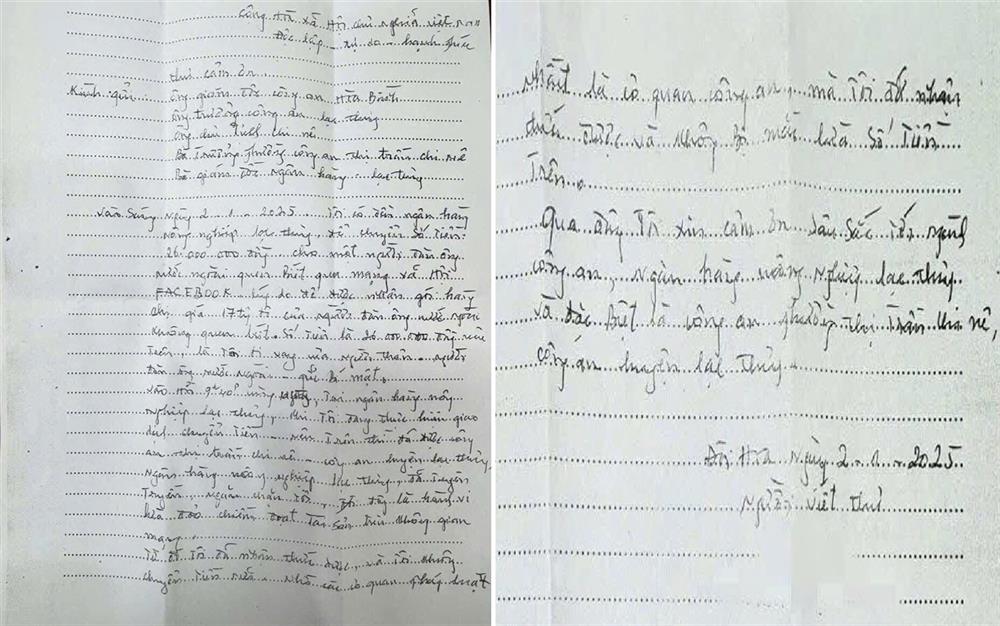 Cộng Hòa xã Hội chủ nghĩa việt nam
Độc lập - tự do - hạnh phúc
thư cảm ơn
Kính gửi: ông giám đốc công an Hòa Bình
ông trưởng công an lạc thủy
ông chủ tịch chi nê
Bà trưởng phường công an thị trấn chi nê
Bà giám đốc ngân hàng lạc thủy
vào sáng ngày 2.1.2025 Tôi có đến ngân hàng
nông nghiệp lạc thủy, để chuyển số tiền
26.000.000 đồng cho một người đàn ông
nước ngoài quen Biết qua mạng xã Hội
FACEBOOK lý do để được nhận gói hàng
trị giá 17 tỷ từ của người đàn ông nước ngoài
không quen biết. số tiền là 26.000.000 đồng nêu
trên, là tôi đi vay của người thân
đàn ông nước ngoài gửi bí mật.
vào hồi 9h40' cùng ngày, Tại ngân hàng nông
nghiệp lạc thủy, khi Tôi đang thực hiện giao
dịch chuyển Tiền nêu Trên thì đã được công
an thị trấn chi nê công an huyện lạc thủy,
Ngân hàng nông nghiệp lạc thủy, đã tuyên
truyền, ngăn chặn tôi, đây là hành vi
lừa đảo chiếm đoạt Tài sản trên không gian
mạng
Từ đó Tôi đã nhận thức được, và Tôi không
chuyển Tiền nữa. Nhờ các cơ quan pháp luật
nhất là cơ quan công an, mà Tôi đã nhận
thức được và không Bị mất lừa số Tiền
Trên.
Qua đây Tôi xin cảm ơn sâu sắc tới ngành
công an, ngân hàng nông nghiệp lạc thủy
và đặc Biệt là công an phường thị Trấn chi nê,
công an huyện lạc thủy
ngày 2.1.2025
người viết thư